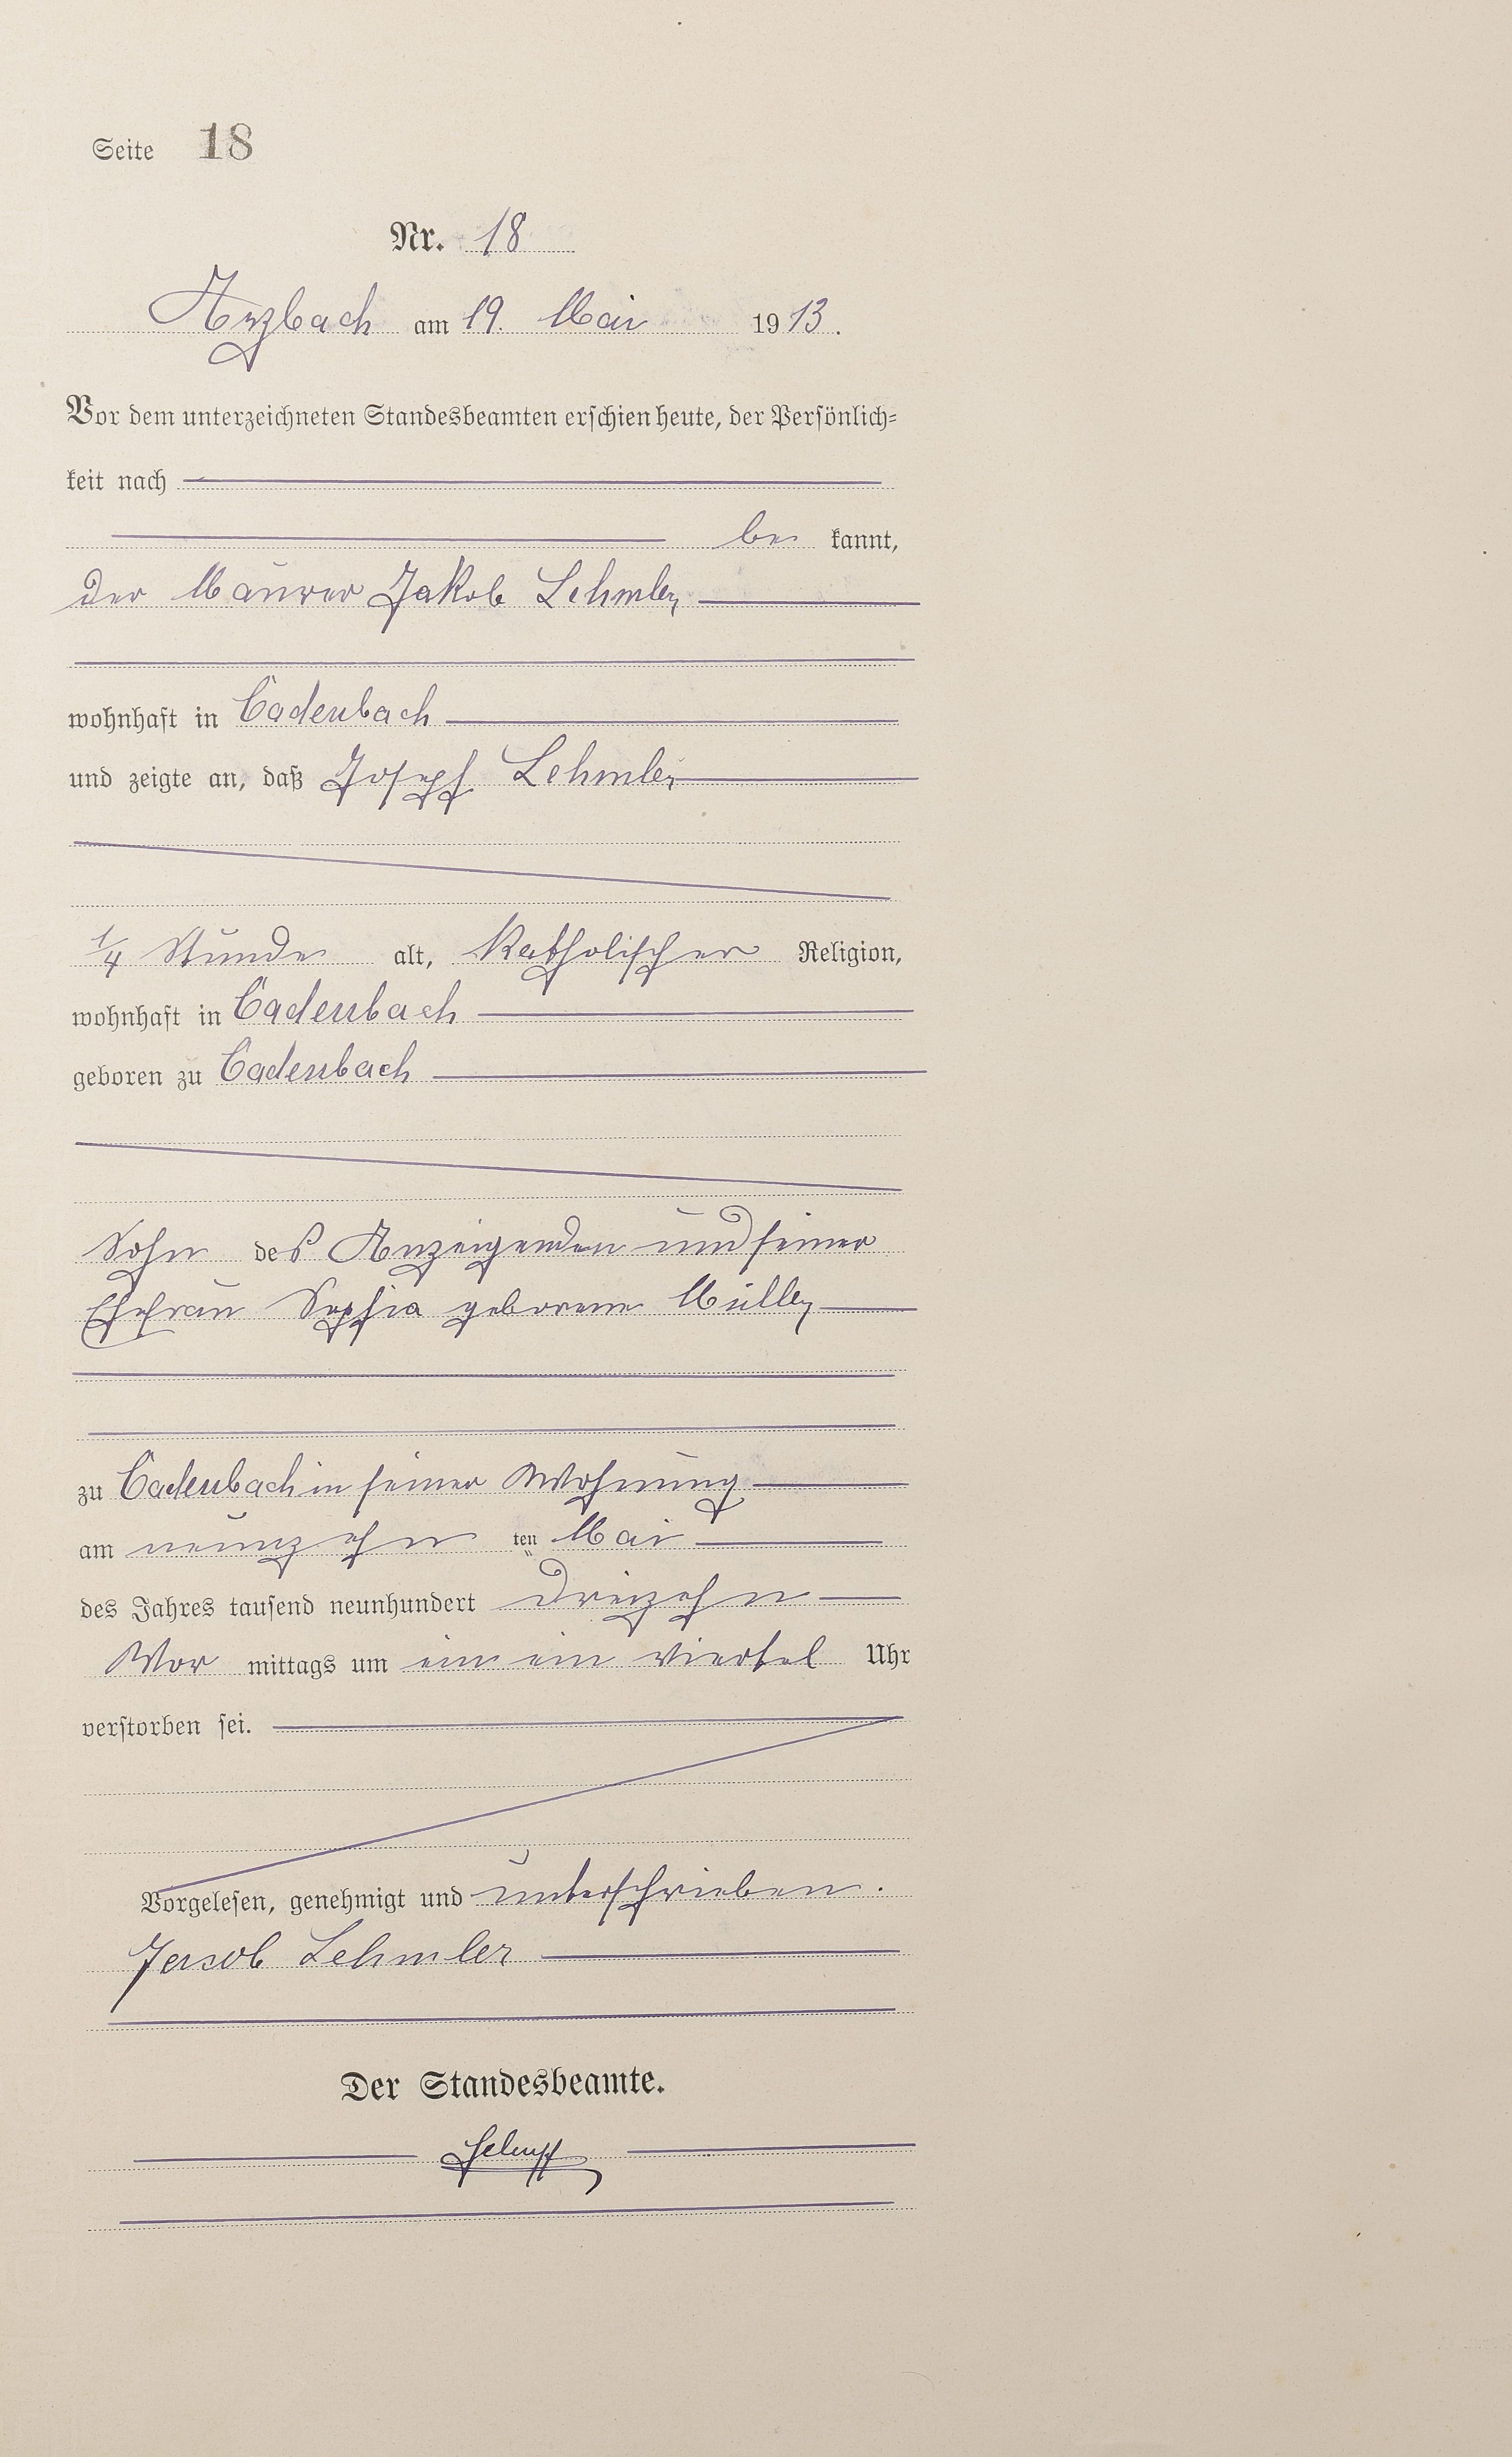 Seite 18
Nr. 18
Arzbach am 19. Mai 1913.
Vor dem unterzeichneten Standesbeamten erschien heute, der Persönlich=
keit nach
be kannt,
der Maurer Jakob Lehmler
wohnhaft in Cadenbach
und zeigte an, daß Joseph Lehmler
1/4 Stunde alt, katholischer Religion,
wohnhaft in Cadenbach
geboren zu Cadenbach
Sohn des Anzeigenden und seiner
Ehefrau Sophia geborene Müller
zu Cadenbach in seiner Wohnung
am neunzehn ten Mai
des Jahres tausend neunhundert dreizehn
Vor mittags um ein ein viertel Uhr
verstorben sei.
Vorgelesen, genehmigt und unterschrieben.
Jacob Lehmler
Der Standesbeamte.